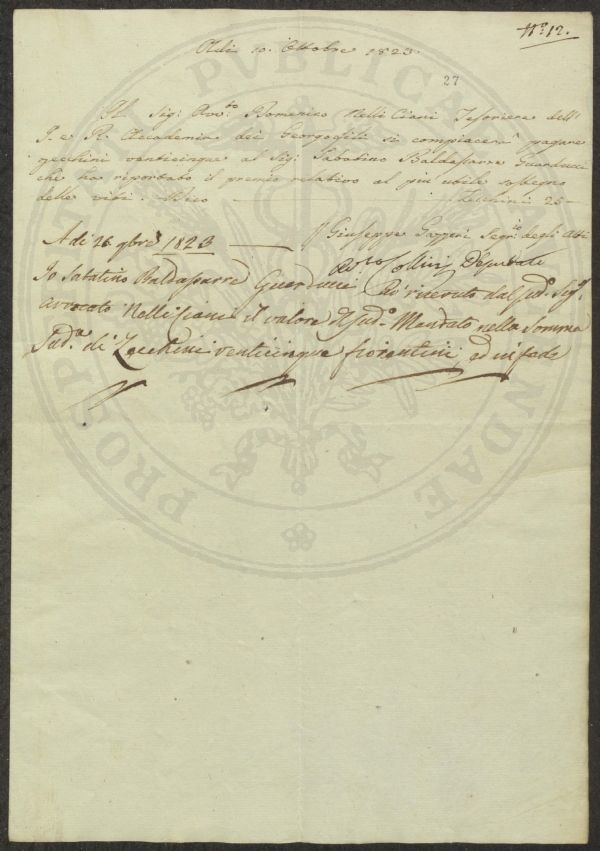 Nº 12.
Adì 10. Ottobre 1823
27
Il Sig: Avv:to Domenico Nelli Ciani Tesoriere dell'
I. e R. Accademia dei Georgofili si compiacerà pagare
zecchini venticinque al Sig: Sabatino Baldassarre Guarducci
che ha riportato il premio relativo al più utile sostegno
delle viti. Dico — Zecchini 25 —
Giuseppe Gazzeri Segr:io degli Atti
Collini Deputato
A dì 26 9bre 1823 —
Io Sabatino Baldassarre Guarducci hò ricevuto dal sud:o Sig:r
Avvocato Nelli Ciani il valore d. sud:o Mandato nella Somma
Sud:a di Zecchini venticinque fiorentini ed in fede
PROSPERITATI PUBLICAE AUGENDAE